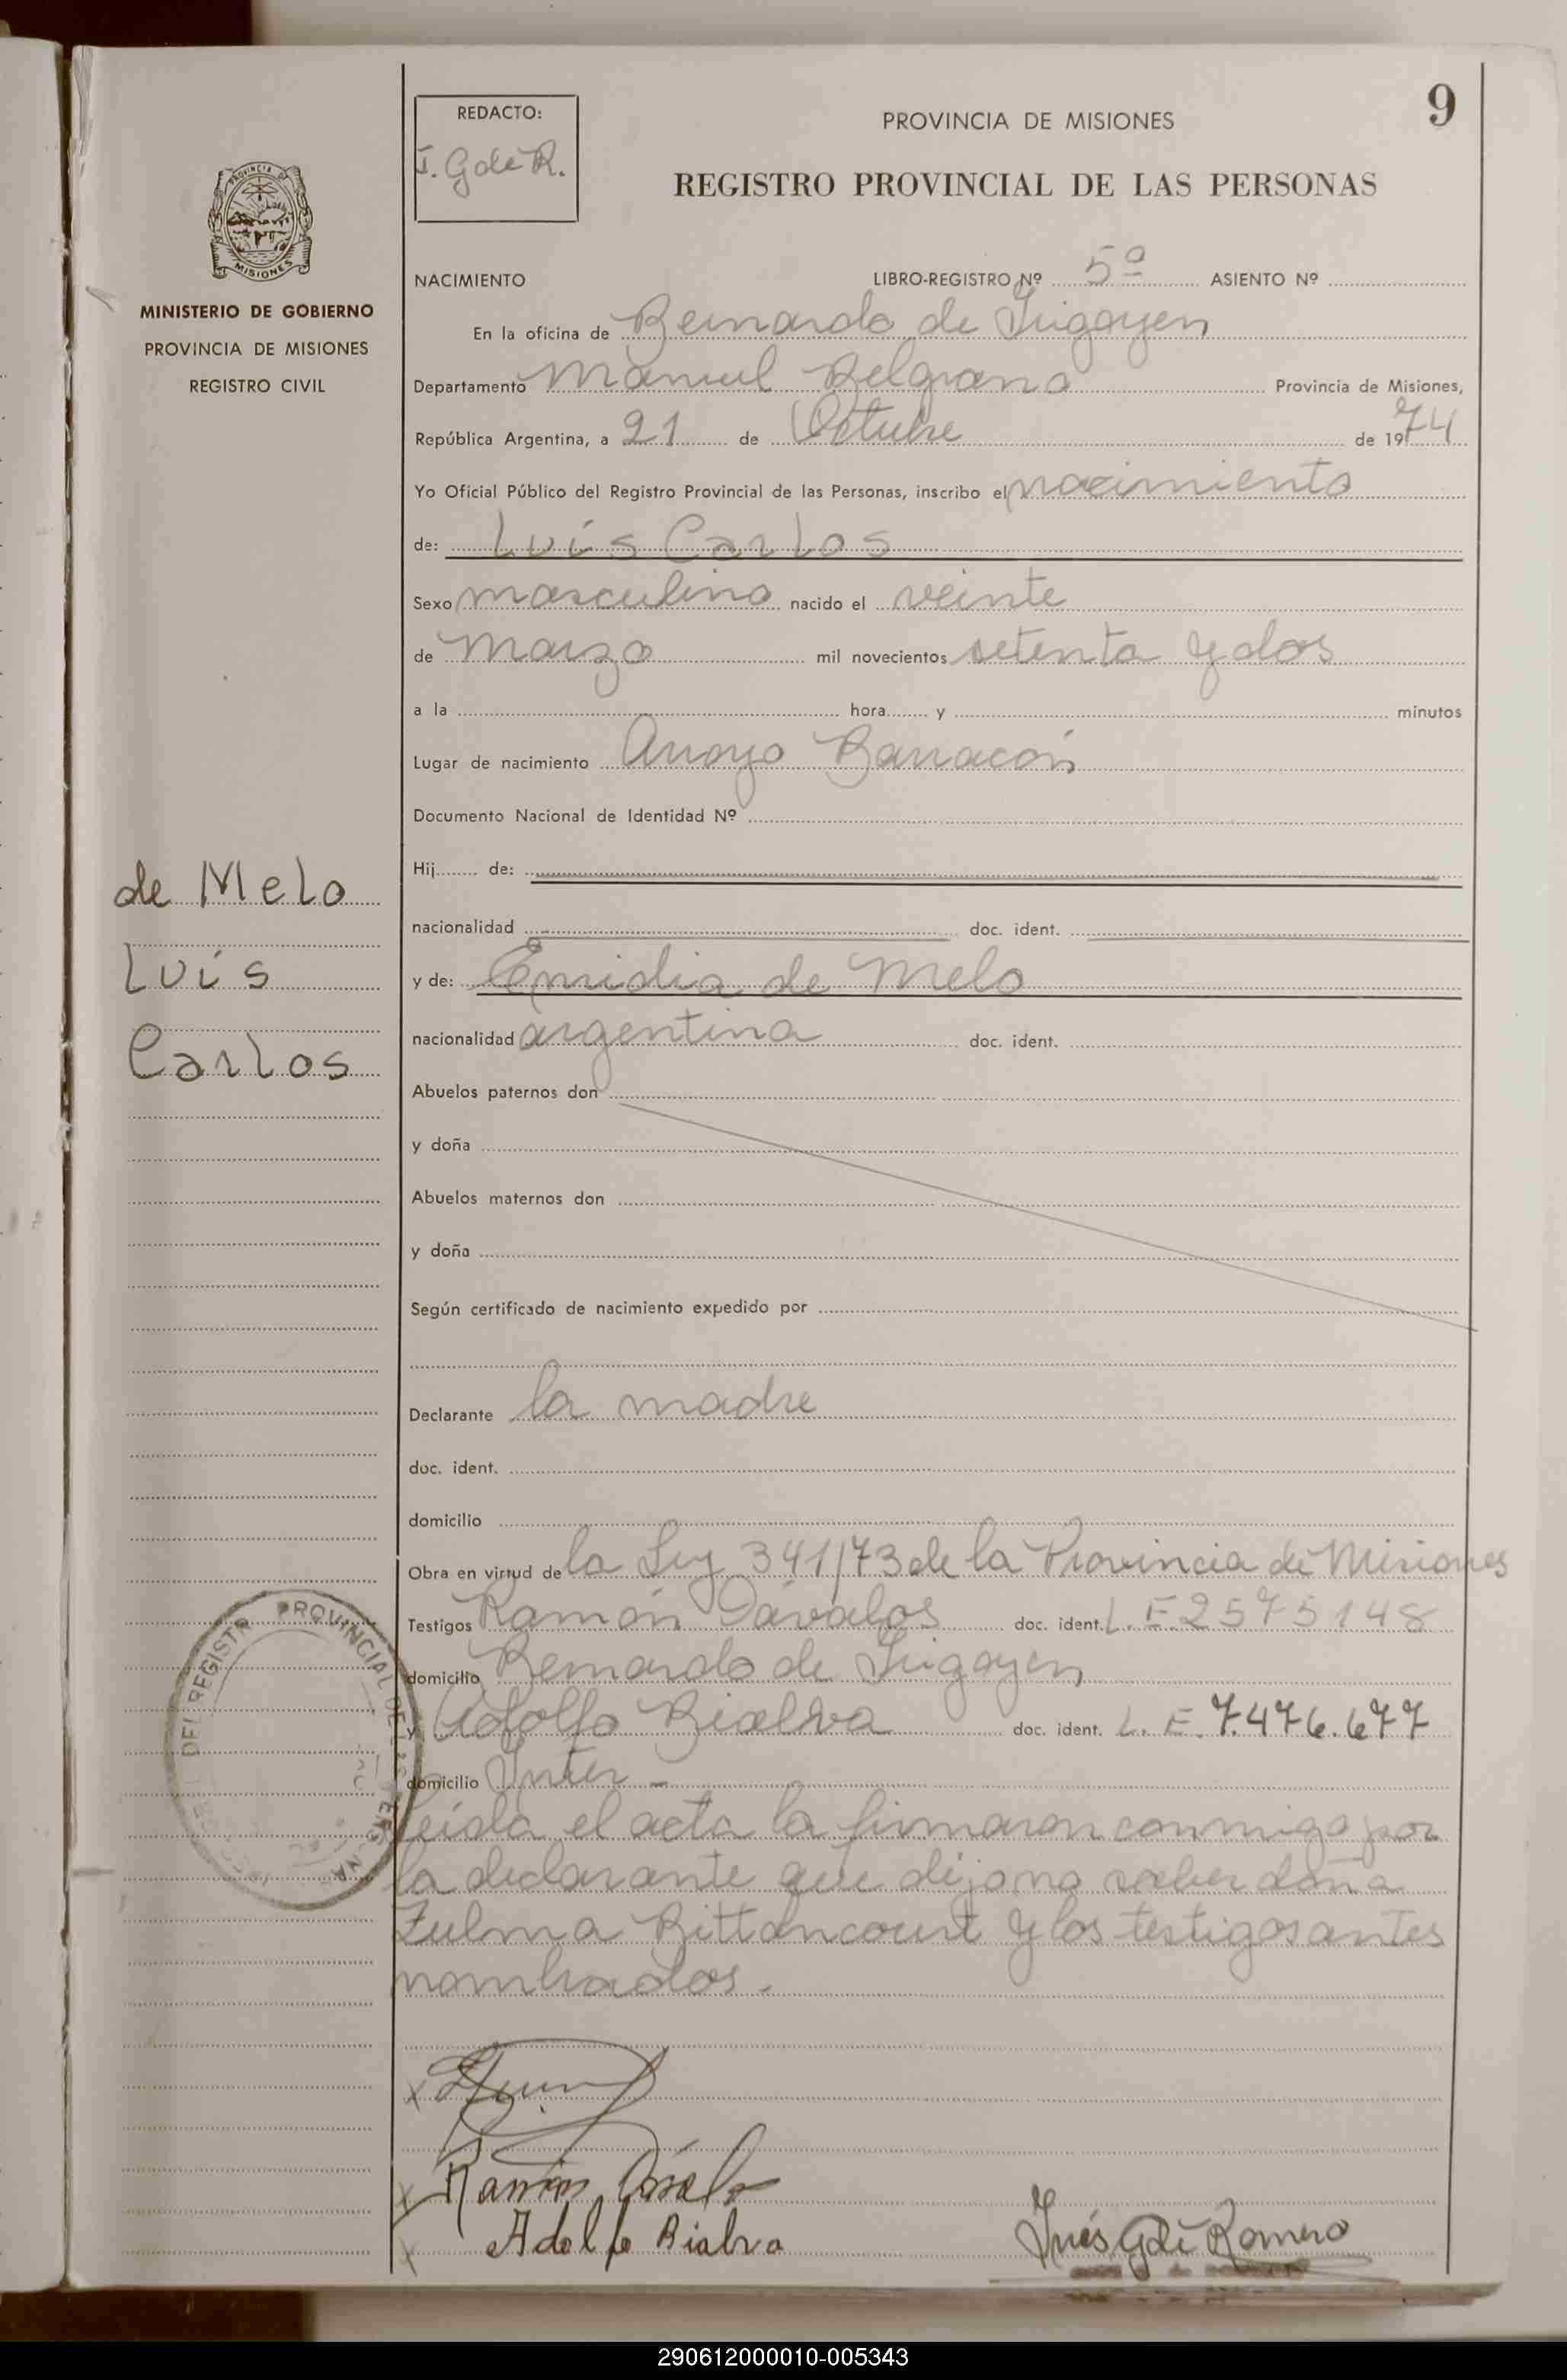 9
REDACTO:
I. G de R.
PROVINCIA DE MISIONES
REGISTRO PROVINCIAL DE LAS PERSONAS
PROVINCIA DE
MISIONES
MINISTERIO DE GOBIERNO
PROVINCIA DE MISIONES
REGISTRO CIVIL
NACIMIENTO LIBRO-REGISTRO Nº 5º ASIENTO Nº
En la oficina de Bernardo de Irigoyen
Departamento Manuel Belgrano Provincia de Misiones,
República Argentina, a 21 de Octubre de 1974
Yo Oficial Público del Registro Provincial de las Personas, inscribo el nacimiento
de: Luis Carlos
Sexo masculino nacido el veinte
de marzo mil novecientos setenta y dos
a la hora y minutos
Lugar de nacimiento Arroyo Barracón
Documento Nacional de Identidad Nº
Hij de:
de Melo
nacionalidad doc. ident.
Luis
y de: Emidia de Melo
nacionalidad argentina doc. ident.
Carlos
Abuelos paternos don
y doña
Abuelos maternos don
y doña
Según certificado de nacimiento expedido por
Declarante la madre
doc. ident.
domicilio
Obra en virtud de la Ley 341/73 de la Provincia de Misiones
Testigos Ramón Dávalos doc. ident. L. E. 2575148
domicilio Bernardo de Irigoyen
y Adolfo Bialva doc. ident. L. E. 7.476.677
domicilio Inter -
leída el acta la firmaron conmigo por
la declarante que dijo no saber doña
Zulma Bittancourt y los testigos antes
nombrados.
DEL REGISTR PROVINCIAL DE
Adolfo Bialva
Inés G de Romero
290612000010-005343